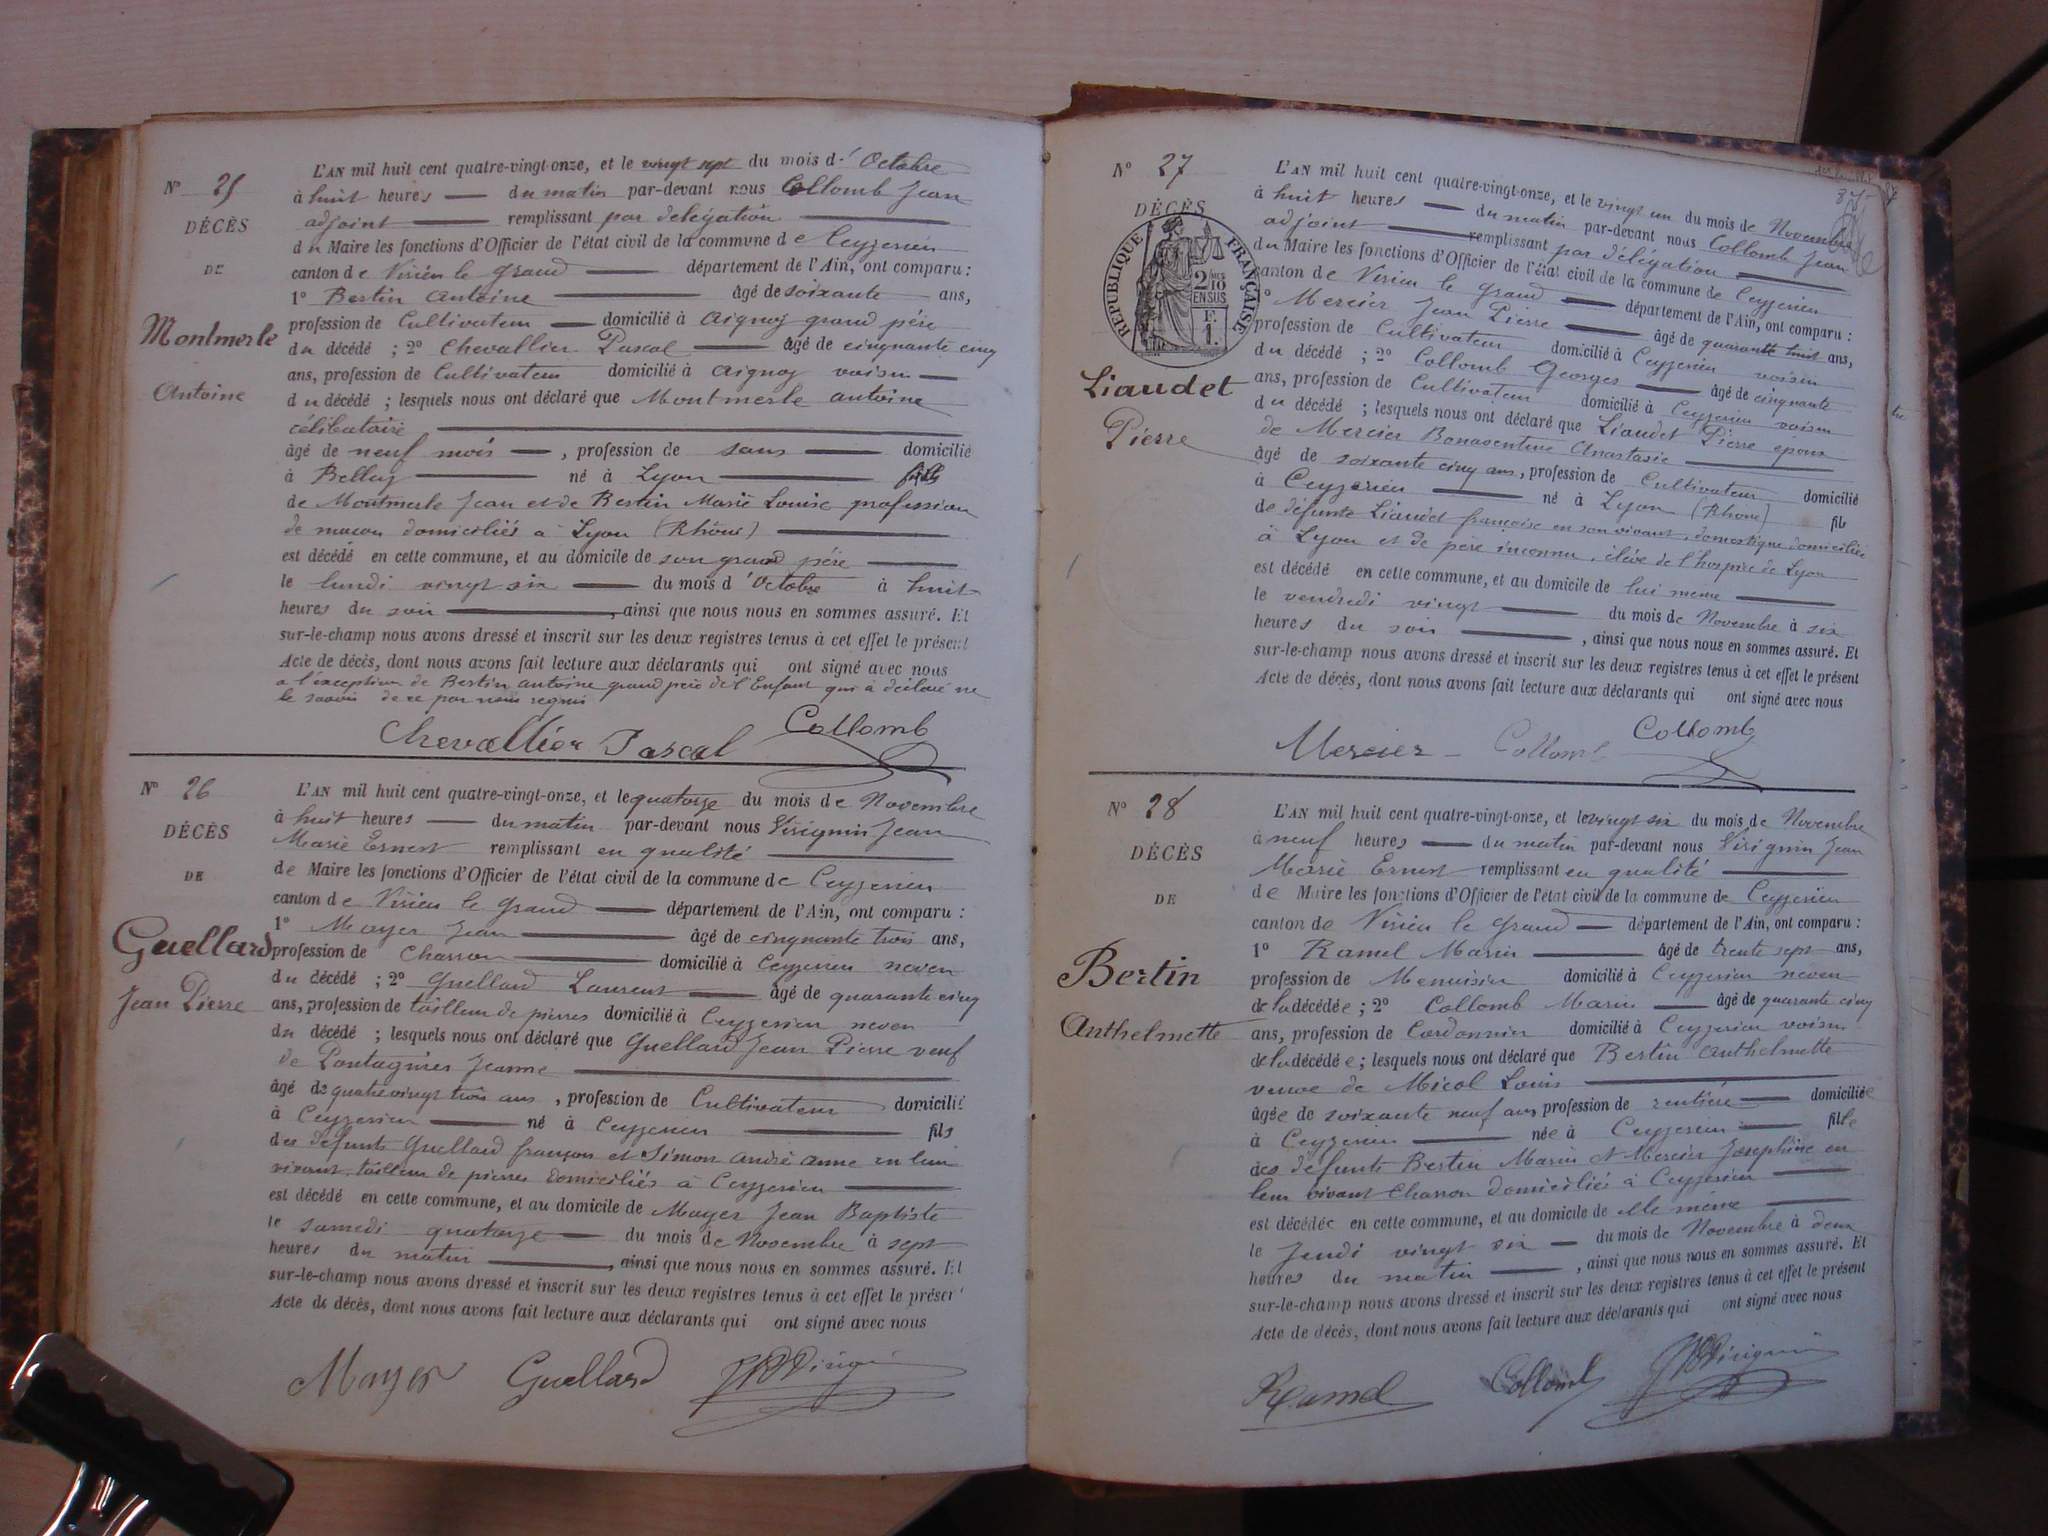 N° 25
DÉCÈS
DE
Montmerle
Antoine
L'AN mil huit cent quatre-vingt-onze, et le vingt sept du mois d' Octobre
à huit heures du matin par-devant nous Collomb Jean
adjoint remplissant par délégation
du Maire les fonctions d'Officier de l'état civil de la commune de Ceyzerieu
canton de Virieu le grand département de l'Ain, ont comparu :
1° Bertin Antoine âgé de soixante ans,
profession de Cultivateur domicilié à Aignoz grand père
du décédé ; 2° Chevallier Pascal âgé de cinquante cinq
ans, profession de Cultivateur domicilié à Aignoz voisin
du décédé ; lesquels nous ont déclaré que Montmerle antoine
célibataire
âgé de neuf mois , profession de sans domicilié
à Belley né à Lyon fils
de Montmerle Jean et de Bertin Marie Louise profession
de macon domiciliés à Lyon (Rhône)
est décédé en cette commune, et au domicile de son grand père
le lundi vingt six du mois d' Octobre à huit
heures du soir , ainsi que nous nous en sommes assuré. Et
sur-le-champ nous avons dressé et inscrit sur les deux registres tenus à cet effet le présent
Acte de décès, dont nous avons fait lecture aux déclarants qui ont signé avec nous
a l'exception de Bertin antoine grand père de l'Enfant qui à déclaré ne
le savoir de ce par nous requis
Chevallier Pascal Collomb
N° 26
DÉCÈS
DE
Guellard
Jean Pierre
L'AN mil huit cent quatre-vingt-onze, et le quatorze du mois de Novembre
à huit heures du matin par-devant nous Virignin Jean
Marie Ernest remplissant en qualité
de Maire les fonctions d'Officier de l'état civil de la commune de Ceyzerieu
canton de Virieu le grand département de l'Ain, ont comparu :
1° Mayer Jean âgé de cinquante trois ans,
profession de Charron domicilié à Ceyzerieu neveu
du décédé ; 2° Guellard Laurent âgé de quarante cinq
ans, profession de tailleur de pierres domicilié à Ceyzerieu neveu
du décédé ; lesquels nous ont déclaré que Guellard Jean Pierre veuf
de Jeanne
âgé de quatre vingt trois ans , profession de Cultivateur domicilié
à Ceyzerieu né à Ceyzerieu fils
des défunts Guellard françois et Simon andré anne en leur
vivant tailleur de pierres domiciliés à Ceyzerieu
est décédé en cette commune, et au domicile de Mayer Jean Baptiste
le samedi quatorze du mois de Novembre à sept
heures du matin , ainsi que nous nous en sommes assuré. Et
sur-le-champ nous avons dressé et inscrit sur les deux registres tenus à cet effet le présent
Acte de décès, dont nous avons fait lecture aux déclarants qui ont signé avec nous
Mayer Guellard
N° 27
DÉCÈS
RÉPUBLIQUE FRANÇAISE
2 MES
10
EN SUS
F.
1.
Liaudet
Pierre
L'AN mil huit cent quatre-vingt-onze, et le vingt un du mois de Novembre
à huit heures du matin par-devant nous Collomb Jean
adjoint remplissant par délégation
du Maire les fonctions d'Officier de l'état civil de la commune de Ceyzerieu
canton de Virieu le grand département de l'Ain, ont comparu :
1° Mercier Jean Pierre âgé de quarante huit ans,
profession de Cultivateur domicilié à Ceyzerieu voisin
du décédé ; 2° Collomb Georges âgé de cinquante
ans, profession de Cultivateur domicilié à Ceyzerieu voisin
du décédé ; lesquels nous ont déclaré que Liaudet Pierre époux
de Mercier Bonaventure Anastasie
âgé de soixante cinq ans, profession de Cultivateur domicilié
à Ceyzerieu né à Lyon (Rhone) fils
de défunte Liaudet françoise en son vivant domestique domiciliée
à Lyon et de père inconnu, élève de l'hospice de Lyon
est décédé en cette commune, et au domicile de lui meme
le vendredi vingt du mois de Novembre à six
heures du soir , ainsi que nous nous en sommes assuré. Et
sur-le-champ nous avons dressé et inscrit sur les deux registres tenus à cet effet le présent
Acte de décès, dont nous avons fait lecture aux déclarants qui ont signé avec nous
Mercier Collomb Collomb
N° 28
DÉCÈS
DE
Bertin
Anthelmette
L'AN mil huit cent quatre-vingt-onze, et le vingt six du mois de Novembre
à neuf heures du matin par-devant nous Virignin Jean
Marie Ernest remplissant en qualité
de Maire les fonctions d'Officier de l'état civil de la commune de Ceyzerieu
canton de Virieu le Grand département de l'Ain, ont comparu :
1° Ramel Marin âgé de trente sept ans,
profession de Menuisier domicilié à Ceyzerieu neveu
de la décédée ; 2° Collomb Marin âgé de quarante cinq
ans, profession de Cordonnier domicilié à Ceyzerieu voisin
de la décédée ; lesquels nous ont déclaré que Bertin Anthelmette
veuve de Micol Louis
âgée de soixante neuf ans profession de rentière domiciliée
à Ceyzerieu née à Ceyzerieu fille
des défunts Bertin Marin et Mercier Josephine en
leur vivant Charron domiciliés à Ceyzerieu
est décédée en cette commune, et au domicile de elle même
le Jeudi vingt six du mois de Novembre à deux
heures du matin , ainsi que nous nous en sommes assuré. Et
sur-le-champ nous avons dressé et inscrit sur les deux registres tenus à cet effet le présent
Acte de décès, dont nous avons fait lecture aux déclarants qui ont signé avec nous
Ramel Collomb